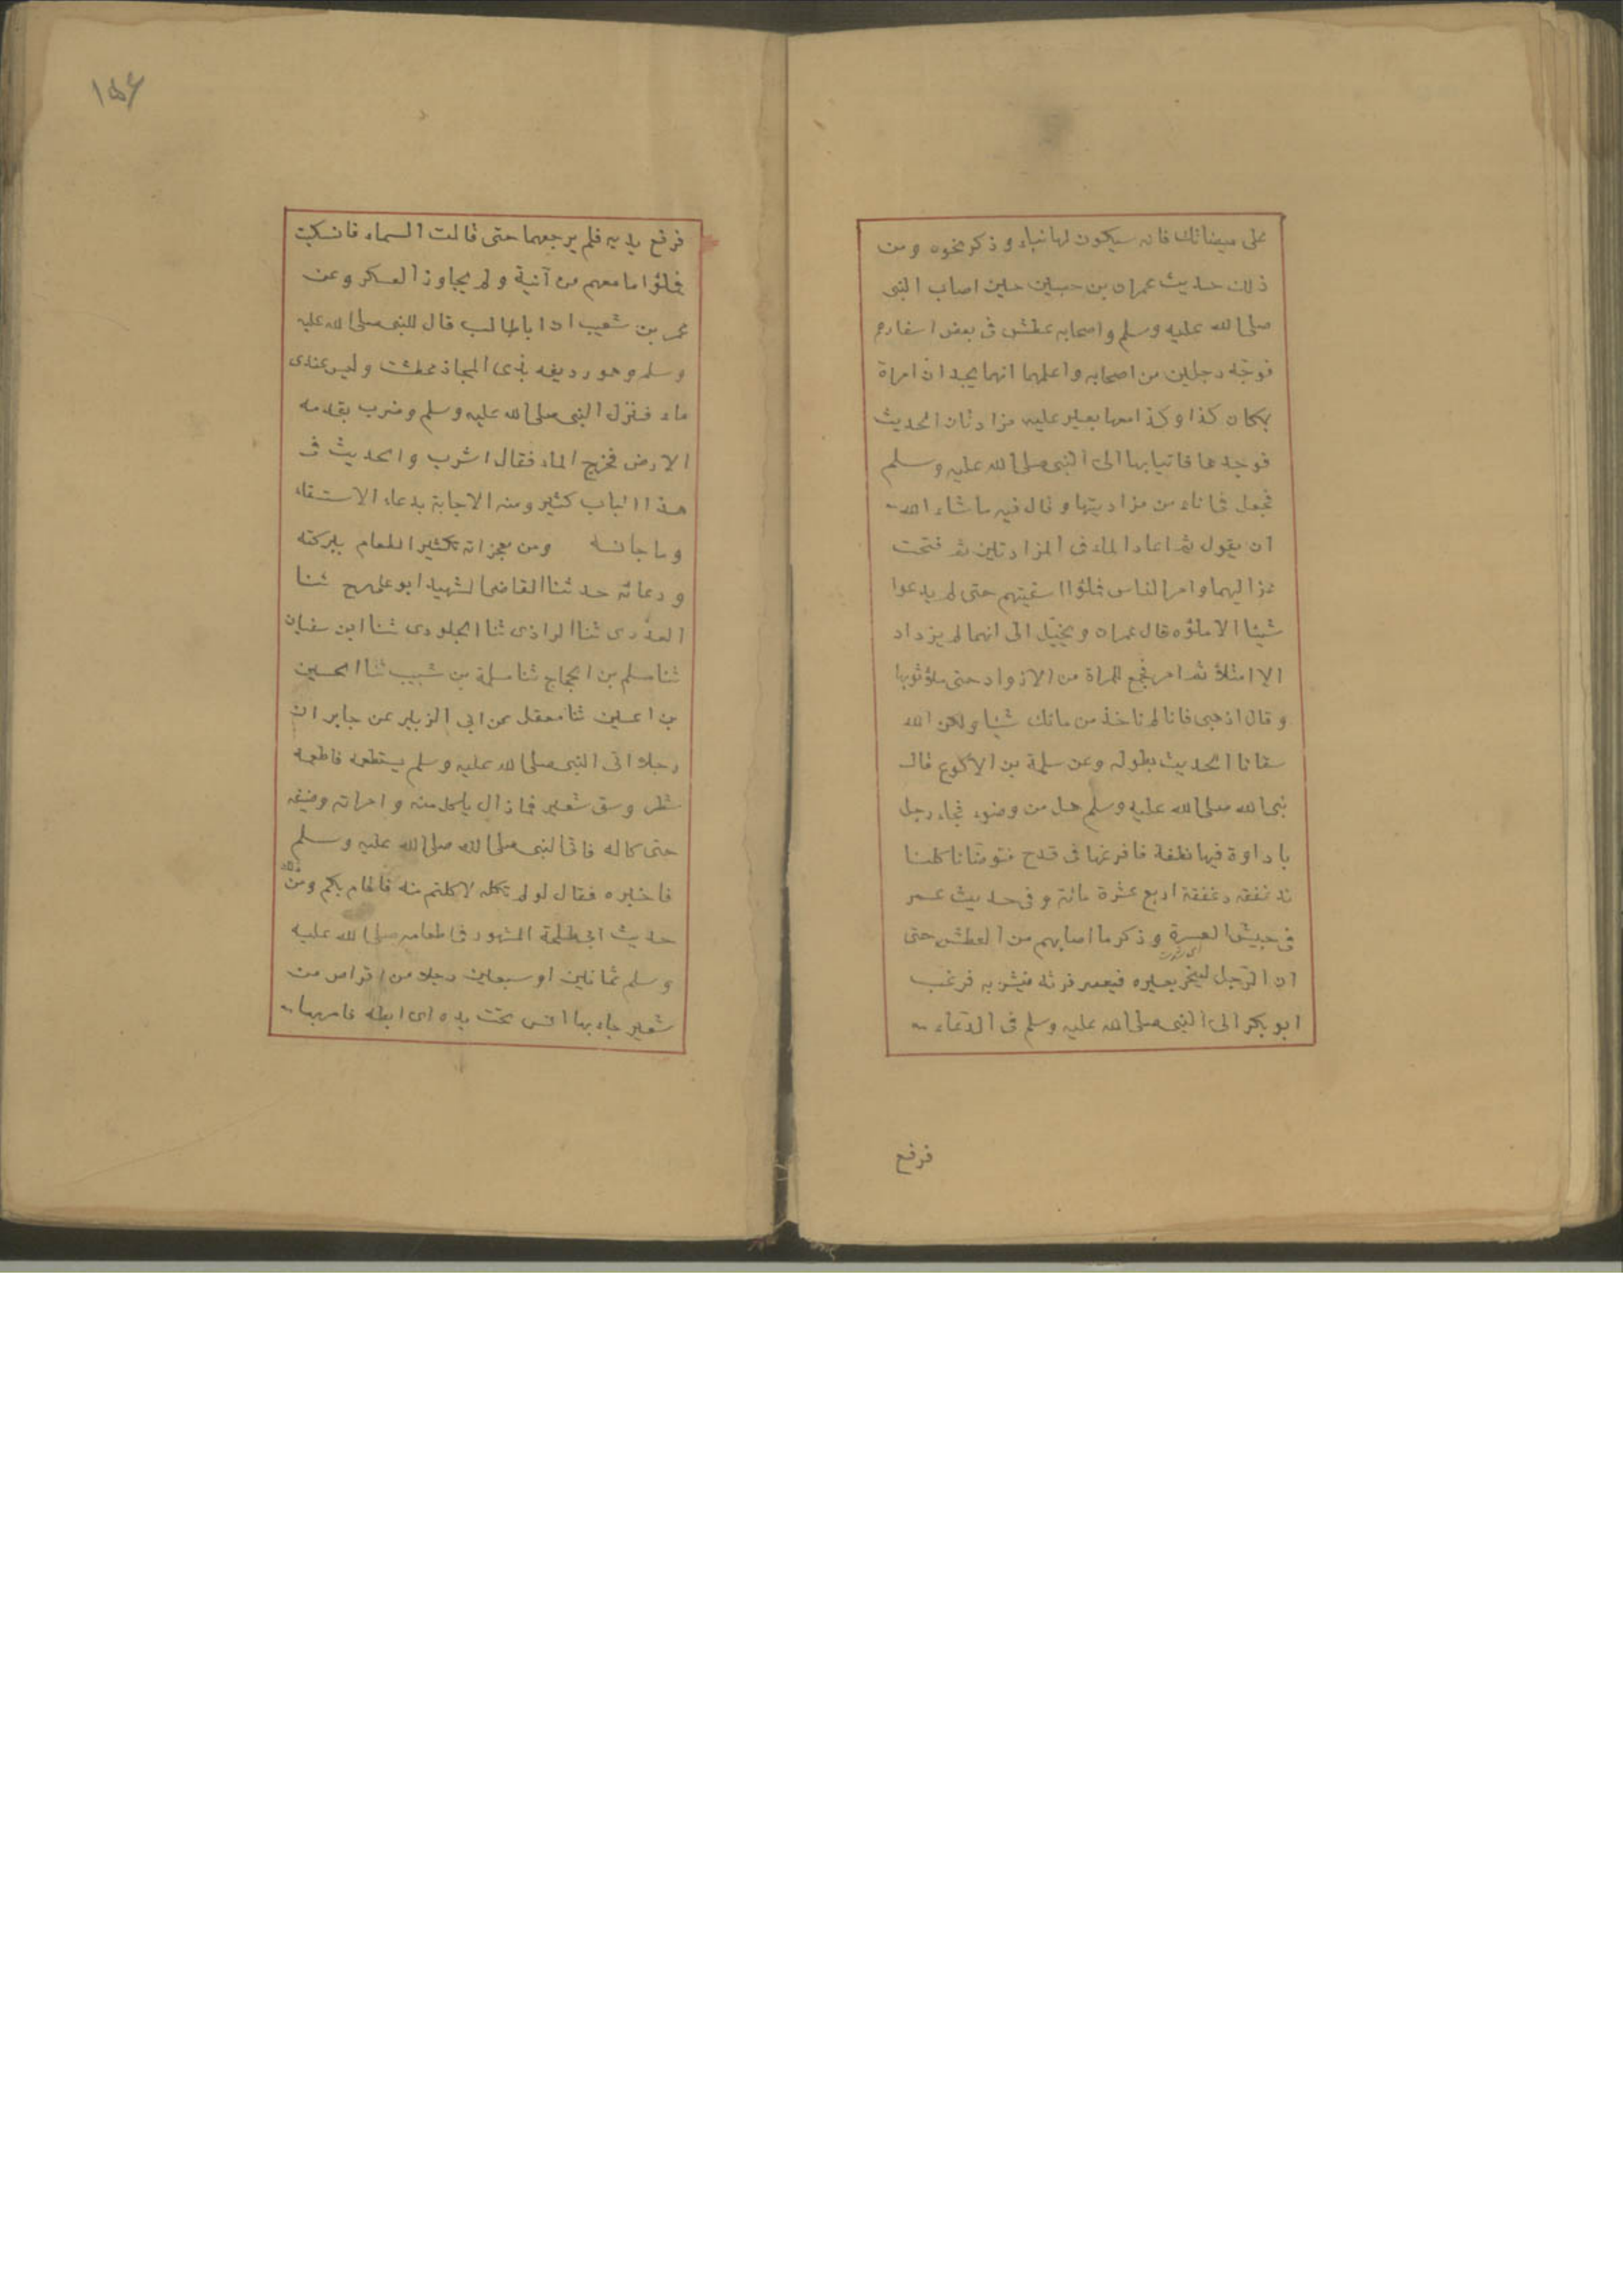 على ميضاتك فانه سيكون لها نباء و ذكر نحوه ومن
ذلك حديث عمران بن حصين حين اصاب النبى
صلى الله عليه وسلم واصحابه عطش فى بعض اسفارهم
فوجّه رجلين من اصحابه واعلمهما انهما يجدان امراة
بمكان كذا وكذا معها بعير عليه مزادتان الحديث
فوجداها فاتيا بها الى النبى صلى الله عليه وسلم
فجعل فى اناء من مزادتيها وقال فيه ما شاء الله
ان يقول ثم اعاد الماء فى المزادتين ثم فتحت
عزاليهما وامر الناس فملؤا اسقيتهم حتى لم يدعوا
شيئا الا ملؤه قال عمران ويخيّل الى انهما لم يزداد
الا امتلاؤ ثم امر فجمع للمراة من الازواد حتى ملؤ ثوبها
وقال اذهبى فانا لم ناخذ من مائك شيئا ولكن الله
سقانا الحديث بطوله وعن سلمة بن الاكوع قال
نبى الله صلى الله عليه وسلم هل من وضوء فجاء رجل
باداوة فيها نطفة فافرغها فى قدح فتوضّانا كلنا
ندغفقه دغفقة اربع عشرة مائة وفى حديث عمر
فى جيش العسرة وذكر ما اصابهم من العطش حتى
ان الرّجل لينحر بعيره فيعصر فرثه فيشربه فرغب
ابو بكر الى النبى صلى الله عليه وسلم فى الدّعاء
فرفع
١٥٤
فرفع يديه فلم يرجعهما حتى قالت السماء فانسكبت
فملؤا ما معهم من آنية ولم يجاوز العسكر وعن
عمر بن شعيب ان اباطالب قال للنبى صلى الله عليه
وسلم وهو رديفه بذى المجاز عطشت وليس عندى
ماء فنزل النبى صلى الله عليه وسلم وضرب بقدمه
الارض فخرج الماء فقال اشرب والحديث فى
هذا الباب كثير ومنه الاجابة بدعاء الاستسقاء
وما جانسه ومن معجزاته تكثير الطعام ببركته
ودعائه حدثنا القاضى الشهيد ابو على رح ثنا
العذرى ثنا الرازى ثنا الجلودى ثنا ابن سفيان
ثنا مسلم بن الحجاج ثنا سلمة بن شبيب ثنا الحسين
بن اعين ثنا معقل عن ابى الزبير عن جابر ان
رجلا اتى النبى صلى الله عليه وسلم يستطعمه فاطعمه
شطر وسق شعير فمازال ياكل منه وامراته وضيفه
حتى كاله فاتى النبى صلى الله صلى الله عليه وسلم
فاخبره فقال لو لم تكله لاكلتم منه ولقام بكم ومن
حديث ابى طلحة المشهور فى اطعامه صلى الله عليه
وسلم ثمانين او سبعين رجلا من اقراص من
شعير جاء بها انس تحت يده اى ابطه فامر بها